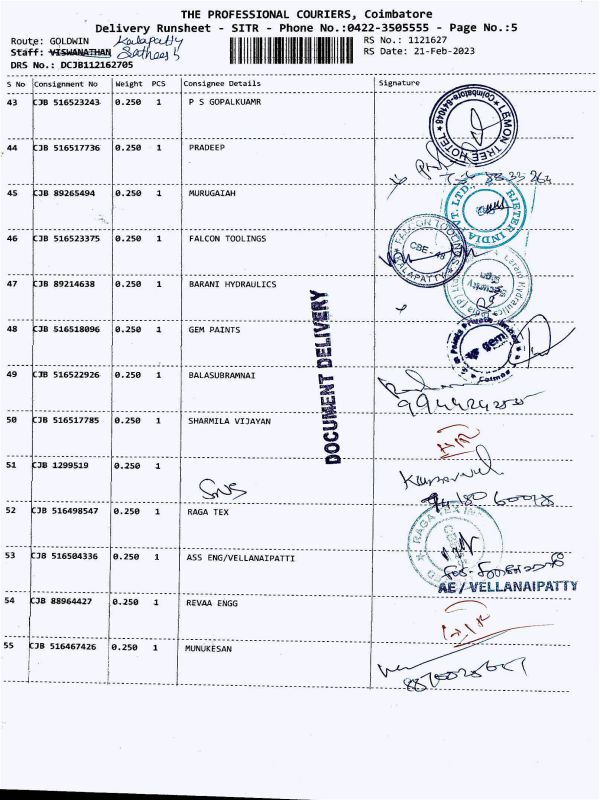 THE PROFESSIONAL COURIERS, Coimbatore
Delivery Runsheet - SITR - Phone No.:0422-3505555 - Page No.:5
Route: GOLDWIN Kalapatty RS No.: 1121627
Staff: VISWANATHAN RS Date: 21-Feb-2023
DRS No.: DCJB112162705
S No Consignment No Weight PCS Consignee Details Signature
43 CJB 516523243 0.250 1 P S GOPALKUAMR
LEMON TREE HOTEL * Coimbatore-641046 *
44 CJB 516517736 0.250 1 PRADEEP
45 CJB 89265494 0.250 1 MURUGAIAH
RIETER INDIA PVT. LTD.
46 CJB 516523375 0.250 1 FALCON TOOLINGS
FALCON TOOLINGS CBE - 48 KALAPATTY
47 CJB 89214638 0.250 1 BARANI HYDRAULICS
Barani Hydraulics India (P) Security Sign
48 CJB 516518096 0.250 1 GEM PAINTS
gem Paints Private Limited
49 CJB 516522926 0.250 1 BALASUBRAMNAI
50 CJB 516517785 0.250 1 SHARMILA VIJAYAN
51 CJB 1299519 0.250 1
SNS
52 CJB 516498547 0.250 1 RAGA TEX
RAGA TEX
53 CJB 516504336 0.250 1 ASS ENG/VELLANAIPATTI
AE / VELLANAIPATTY
54 CJB 88964427 0.250 1 REVAA ENGG
55 CJB 516467426 0.250 1 MUNUKESAN
DOCUMENT DELIVERY